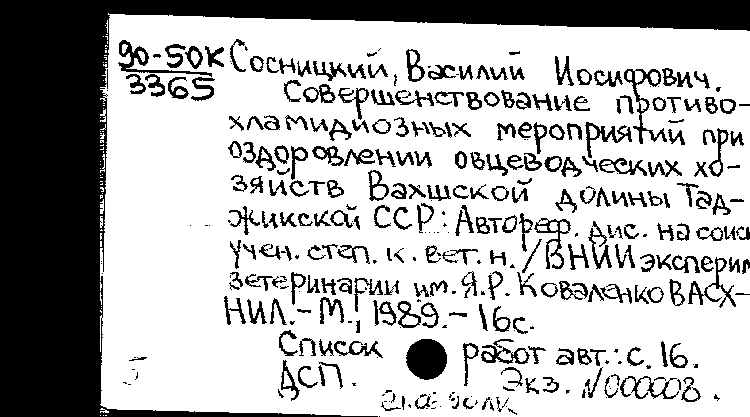 90-50К Сосницкий, Василий Иосифович.
3365 Совершенствование противо-
хламидиозных мероприятий при
оздоровлении овцеводческих хо-
зяйств Вахшской долины Тад-
жикской ССР: Автореф. дис. на соиск
учен. степ. к. вет. н. / ВНИИ эксперим
ветеринарии им. Я.Р. Коваленко ВАСХ-
НИЛ. - М., 1989. - 16с.
Список работ авт.: с. 16.
5 ДСП. Экз. N000008.